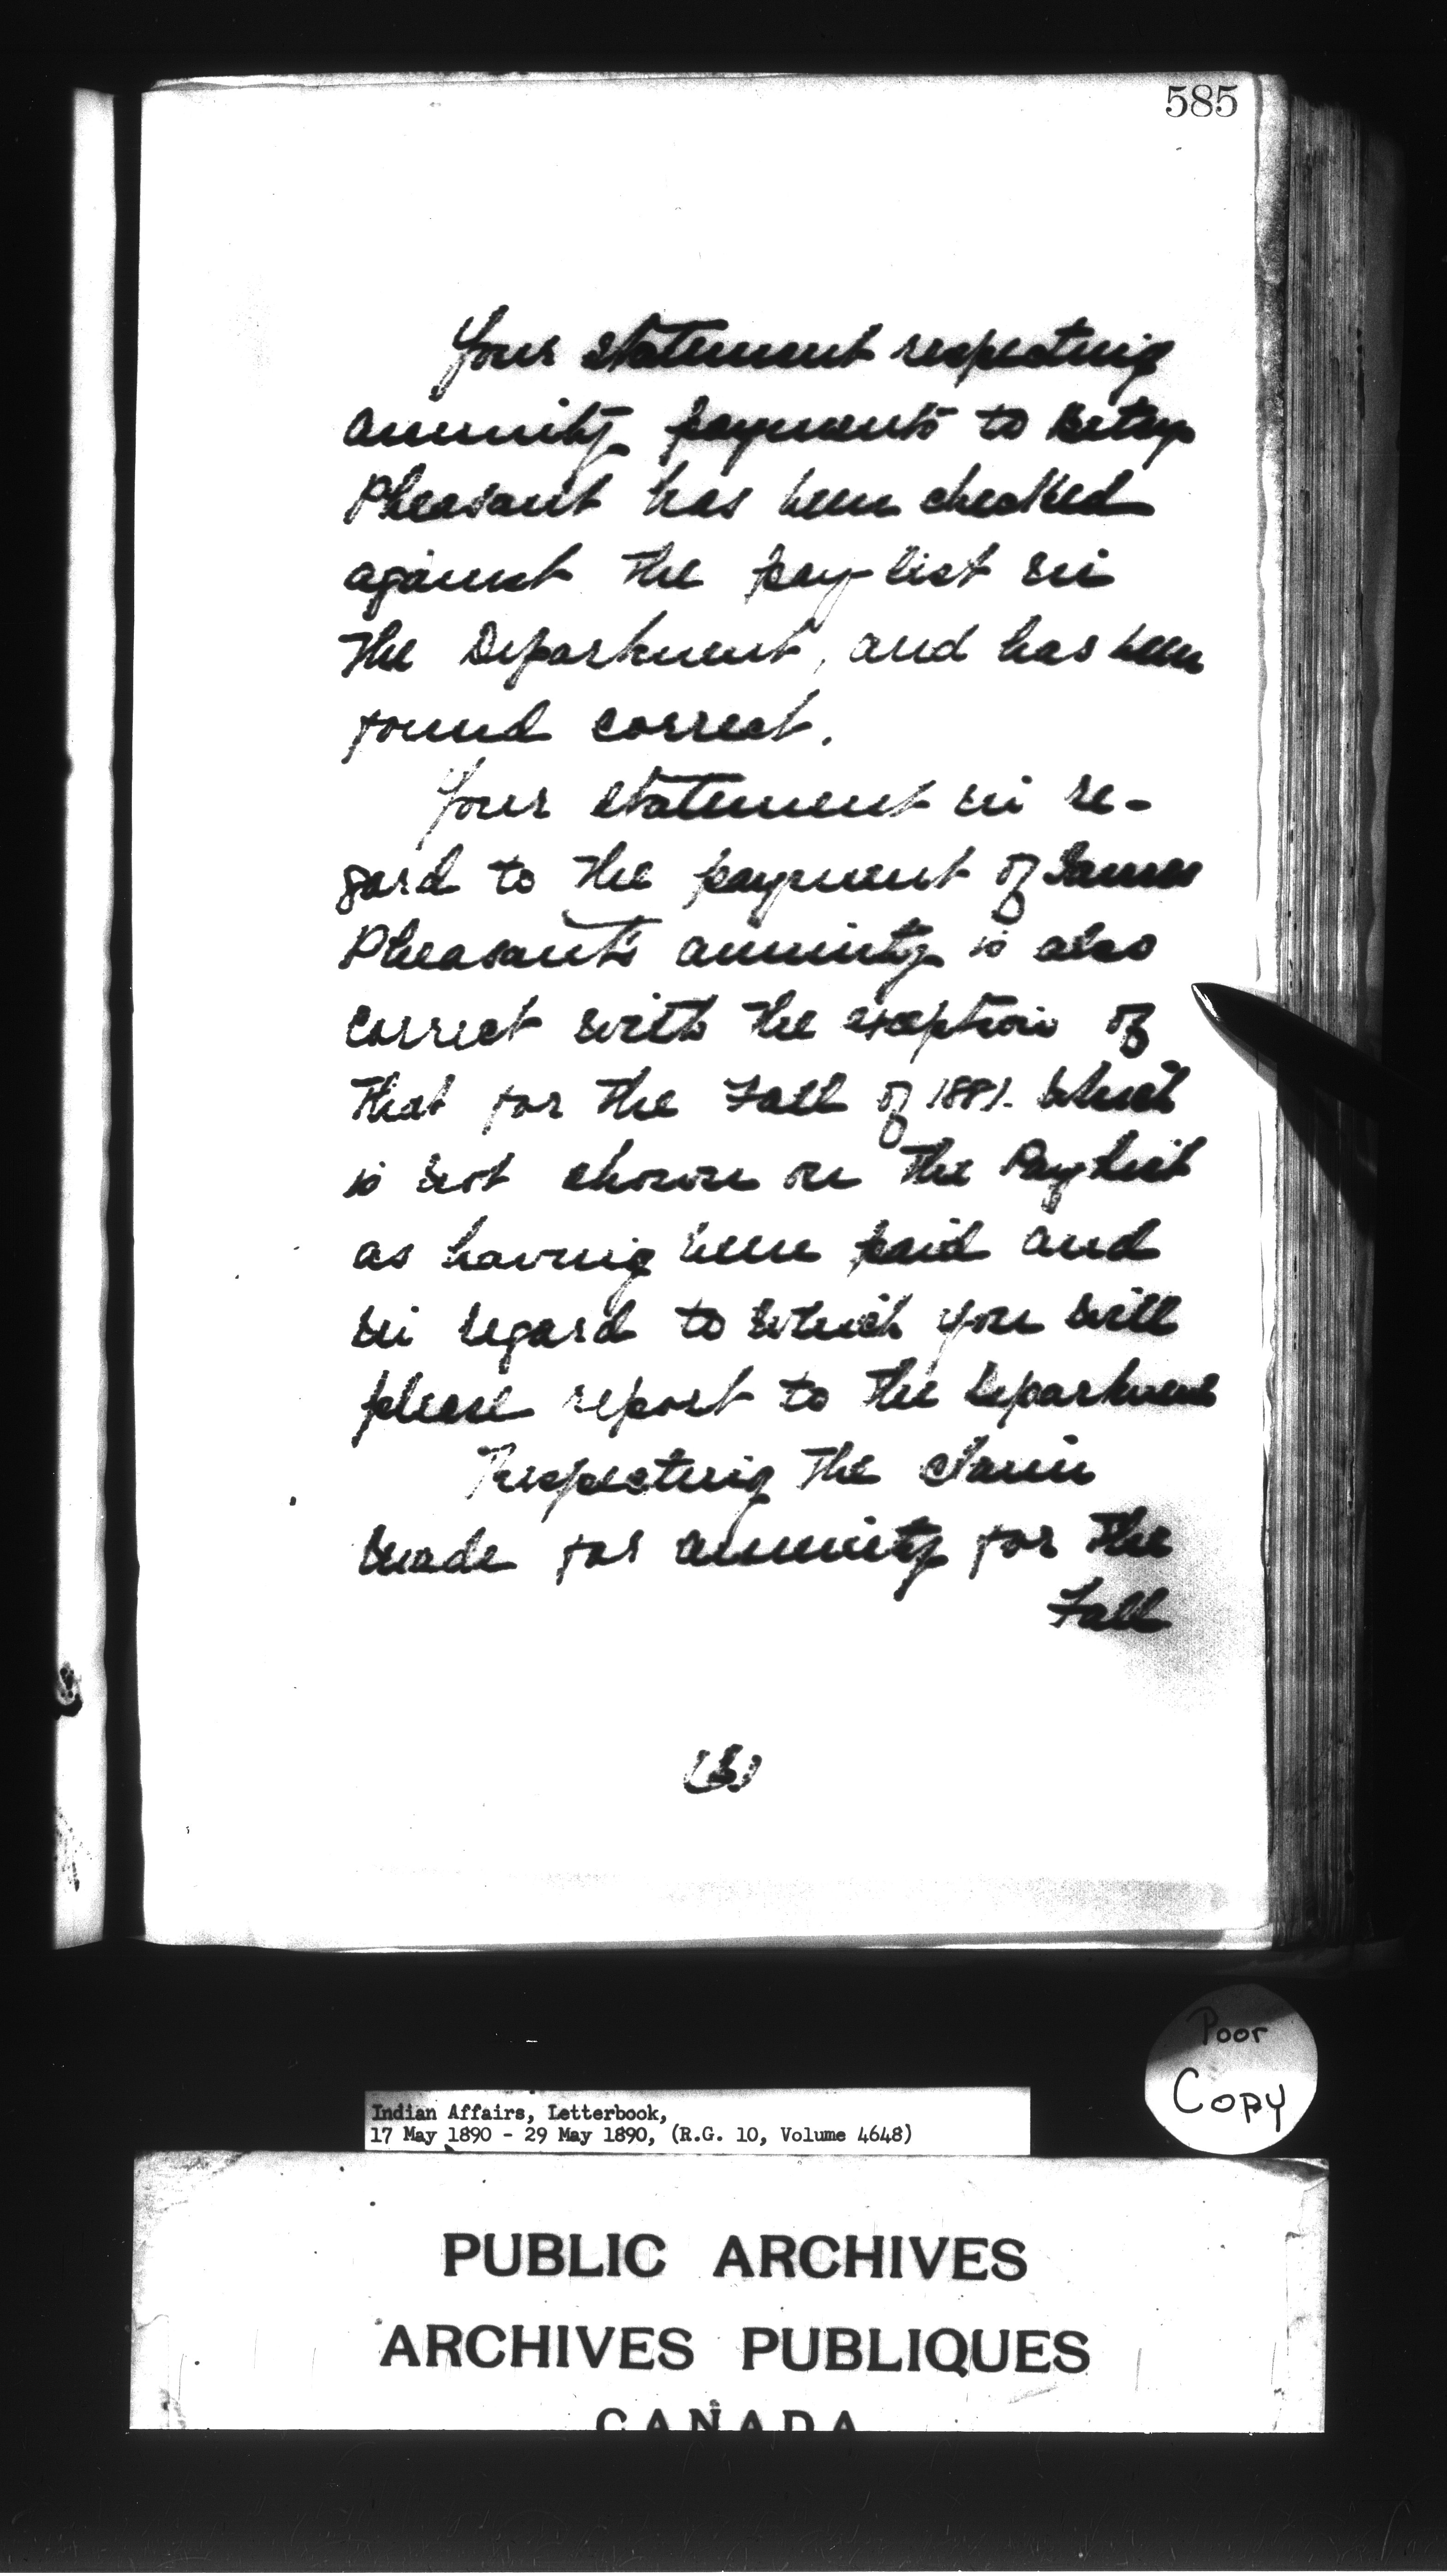 585
Your statement respecting
annuity payments to Betsy
Pheasant has been checked
against the pay list in
the Department, and has been
found correct.
Your statement in re-
gard to the payment of James
Pheasant's annuity is also
correct with the exception of
that for the Fall of 1881. which
is not shown on the Pay list
as having been paid and
in regard to which you will
please report to the Department
Respecting the claim
made for annuity for the
Fall
Poor
Copy
Indian Affairs, Letterbook,
17 May 1890 - 29 May 1890, (R.G. 10, Volume 4648)
PUBLIC ARCHIVES
ARCHIVES PUBLIQUES
CANADA